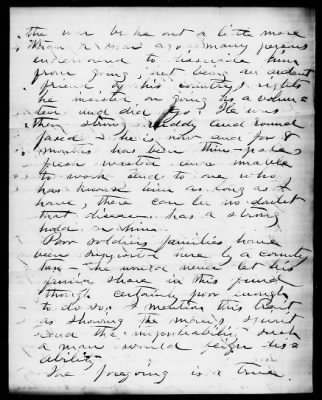 the war broke out a little more
than a year ago many persons
endeavored to dissuade him
from going, but being an ardent
friend of his country's rights
he insisted on going as a volun-
teer and did go. He was
then strong, ruddy and round
faced. He is now and for 8
months has been thin - pale -
flesh wasted and unable
to work and to one who
has known him as long as I
have, there can be no doubt
that disease has a strong
hold on him.
Poor soldiers families have
been supported here by a county
tax - He would never let his
family share in this fund
though certainly poor enough
to do so. I mention this trait
as showing the man's spirit
and the improbability such
a man would feign dis-
ability -
The foregoing is a true